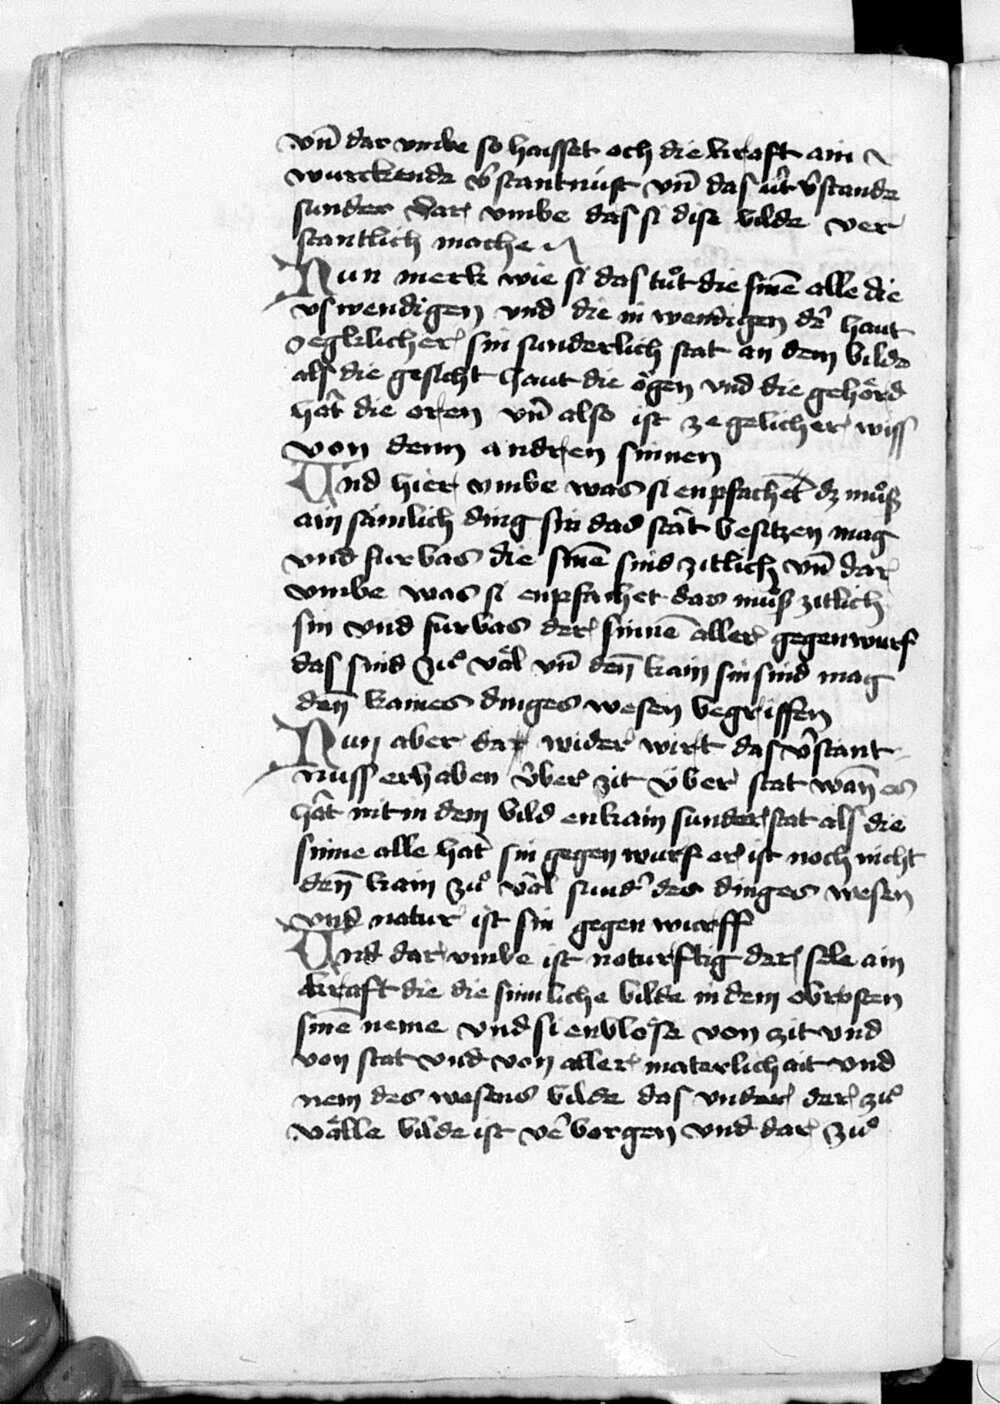 vn̄ dar vmbe so haisset och die kraft ain
wurckende v̂stantnúst vn̄ das nit v̂stande
sunder dar vmbe das si dise bilde ver
stantlich mache
Nun merk wie si das tuͦt die sinē alle die
vswendigen vnd die in wendigen der̂ haut
ieglicher sin sunderlich stat an dem bilde
als die gesicht haut die oͤgen vnd die gehoͤrd
hât die oren vn̄ also ist ze gelicher wiss
von denn andren sinnen
Vnd hier vmbe was si enpfachet dz muͦß
ain sinlich ding sin das stât besitzen mag
vnd furbas die sinē sind zitlich vn̄ dar
vmbe was si enpfachet das muͦß zitlich
sin vnd furbas der sinnē aller gegenwurf
das sind zuͦ väl vn̄ den̄ kain sin sind mag
den̄ kaines dinges wesen begriffen
Nun aber dar wider wirt das v̂stant
nuss erhaben v̂ber zit v̈ber stat wan̄ es
hât nit in dem bild enkain sunder stat als die
sinne alle hat sin gegen wurf er ist noch nicht
den̄ kain zuͦ väl sund̂ des dinges wesen
vnd natur ist sin gegen wurff
Vnd dar vmbe ist noturftig der sele ain
kraft die die sinnliche bilde in dem obrosten
sinē neme vnd si enbloͤse von zit vnd
von stat vnd von aller materlichait vnd
nem des wesens bilde das vnder der zuͦ
välle bilde ist v̂borgen vnd dar zuͦ